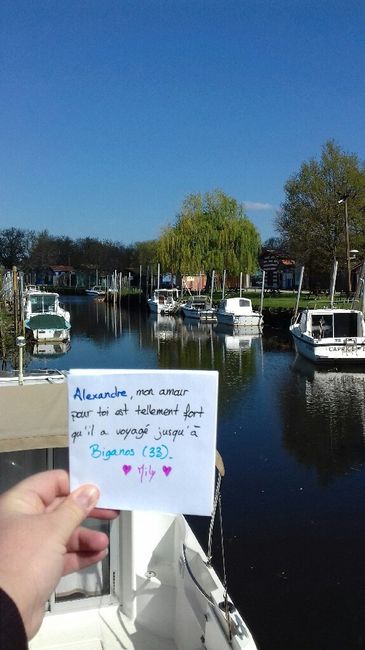 Alexandre, mon amour
pour toi est tellement fort
qu'il a voyagé jusqu'à
Biganos (33).
♥ Mily ♥
CAPRICE